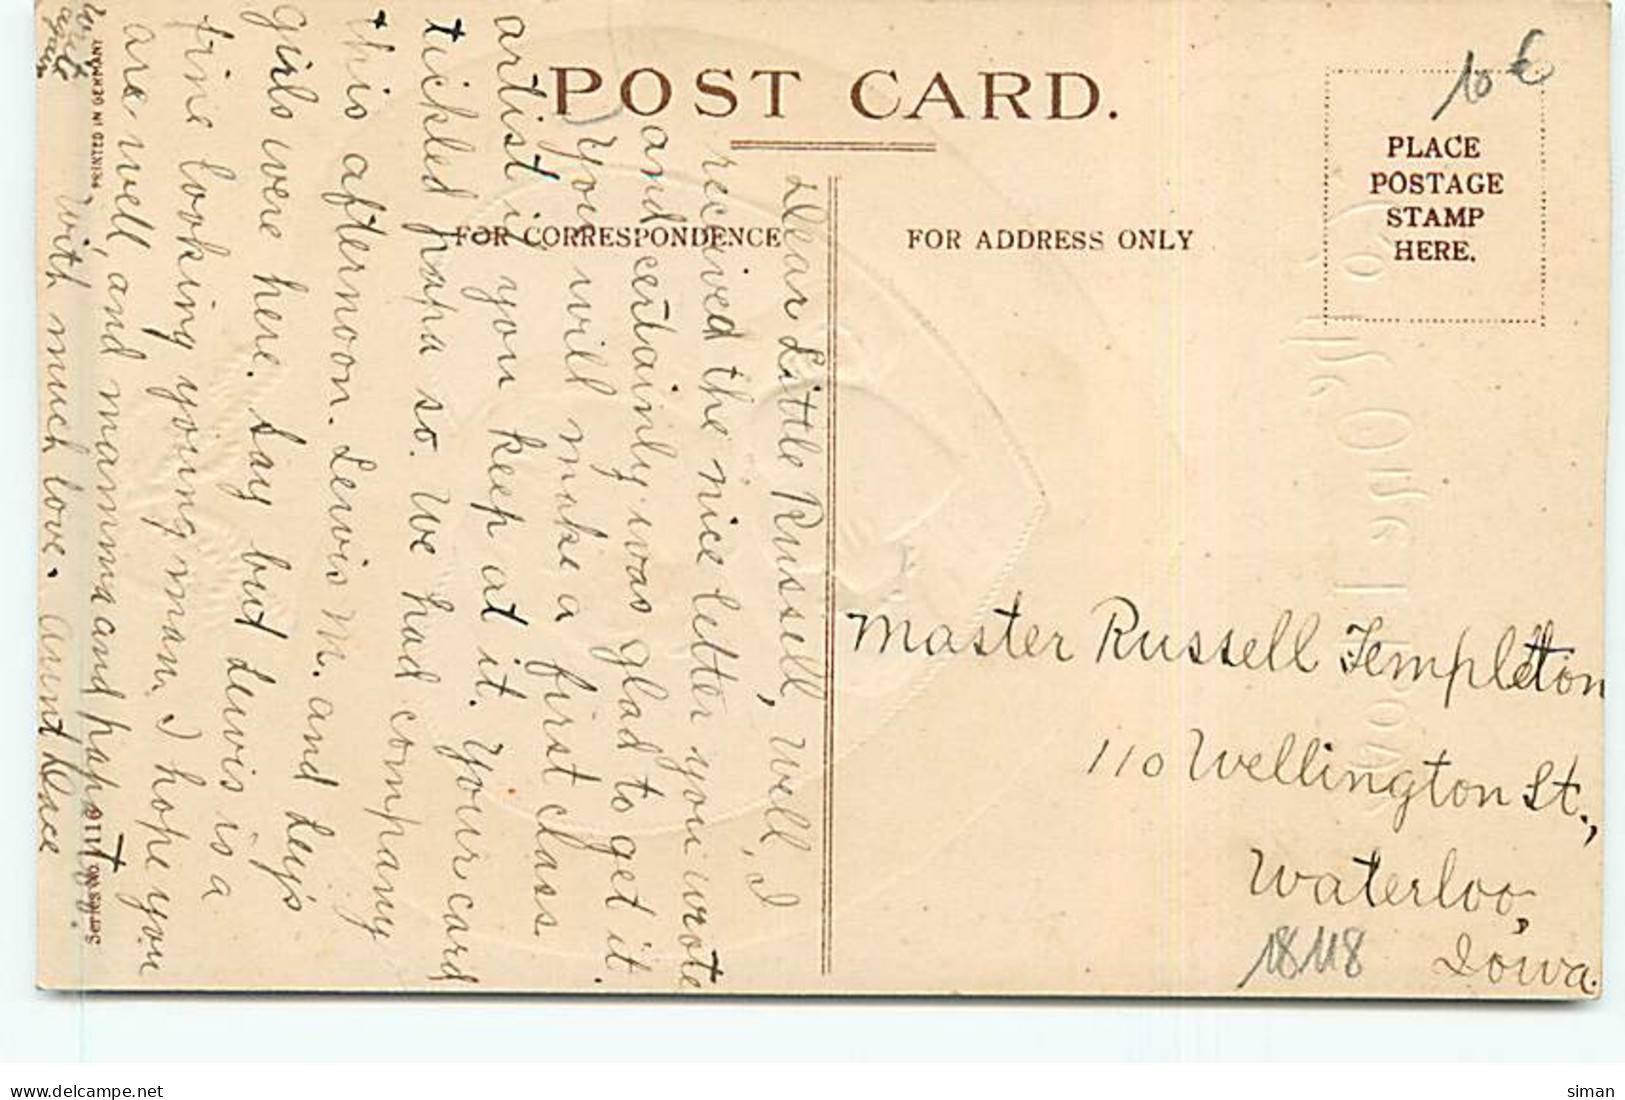 POST CARD.
FOR CORRESPONDENCE
FOR ADDRESS ONLY
PLACE
POSTAGE
STAMP
HERE.
10 €
Dear Little Russell, Well, I
received the nice letter you wrote
and certainly was glad to get it.
You will make a first class
artist if you keep at it. Your card
tickled papa so. We had company
this afternoon. Lewis M. and
girls were here. Say but Lewis is a
fine looking young man. I hope you
are well, and mamma and papa too.
With much love. Aunt
Master Russell Templeton
110 Wellington St.,
Waterloo,
Iowa.
18118
PRINTED IN GERMANY
SERIES NO
siman
www.delcampe.net